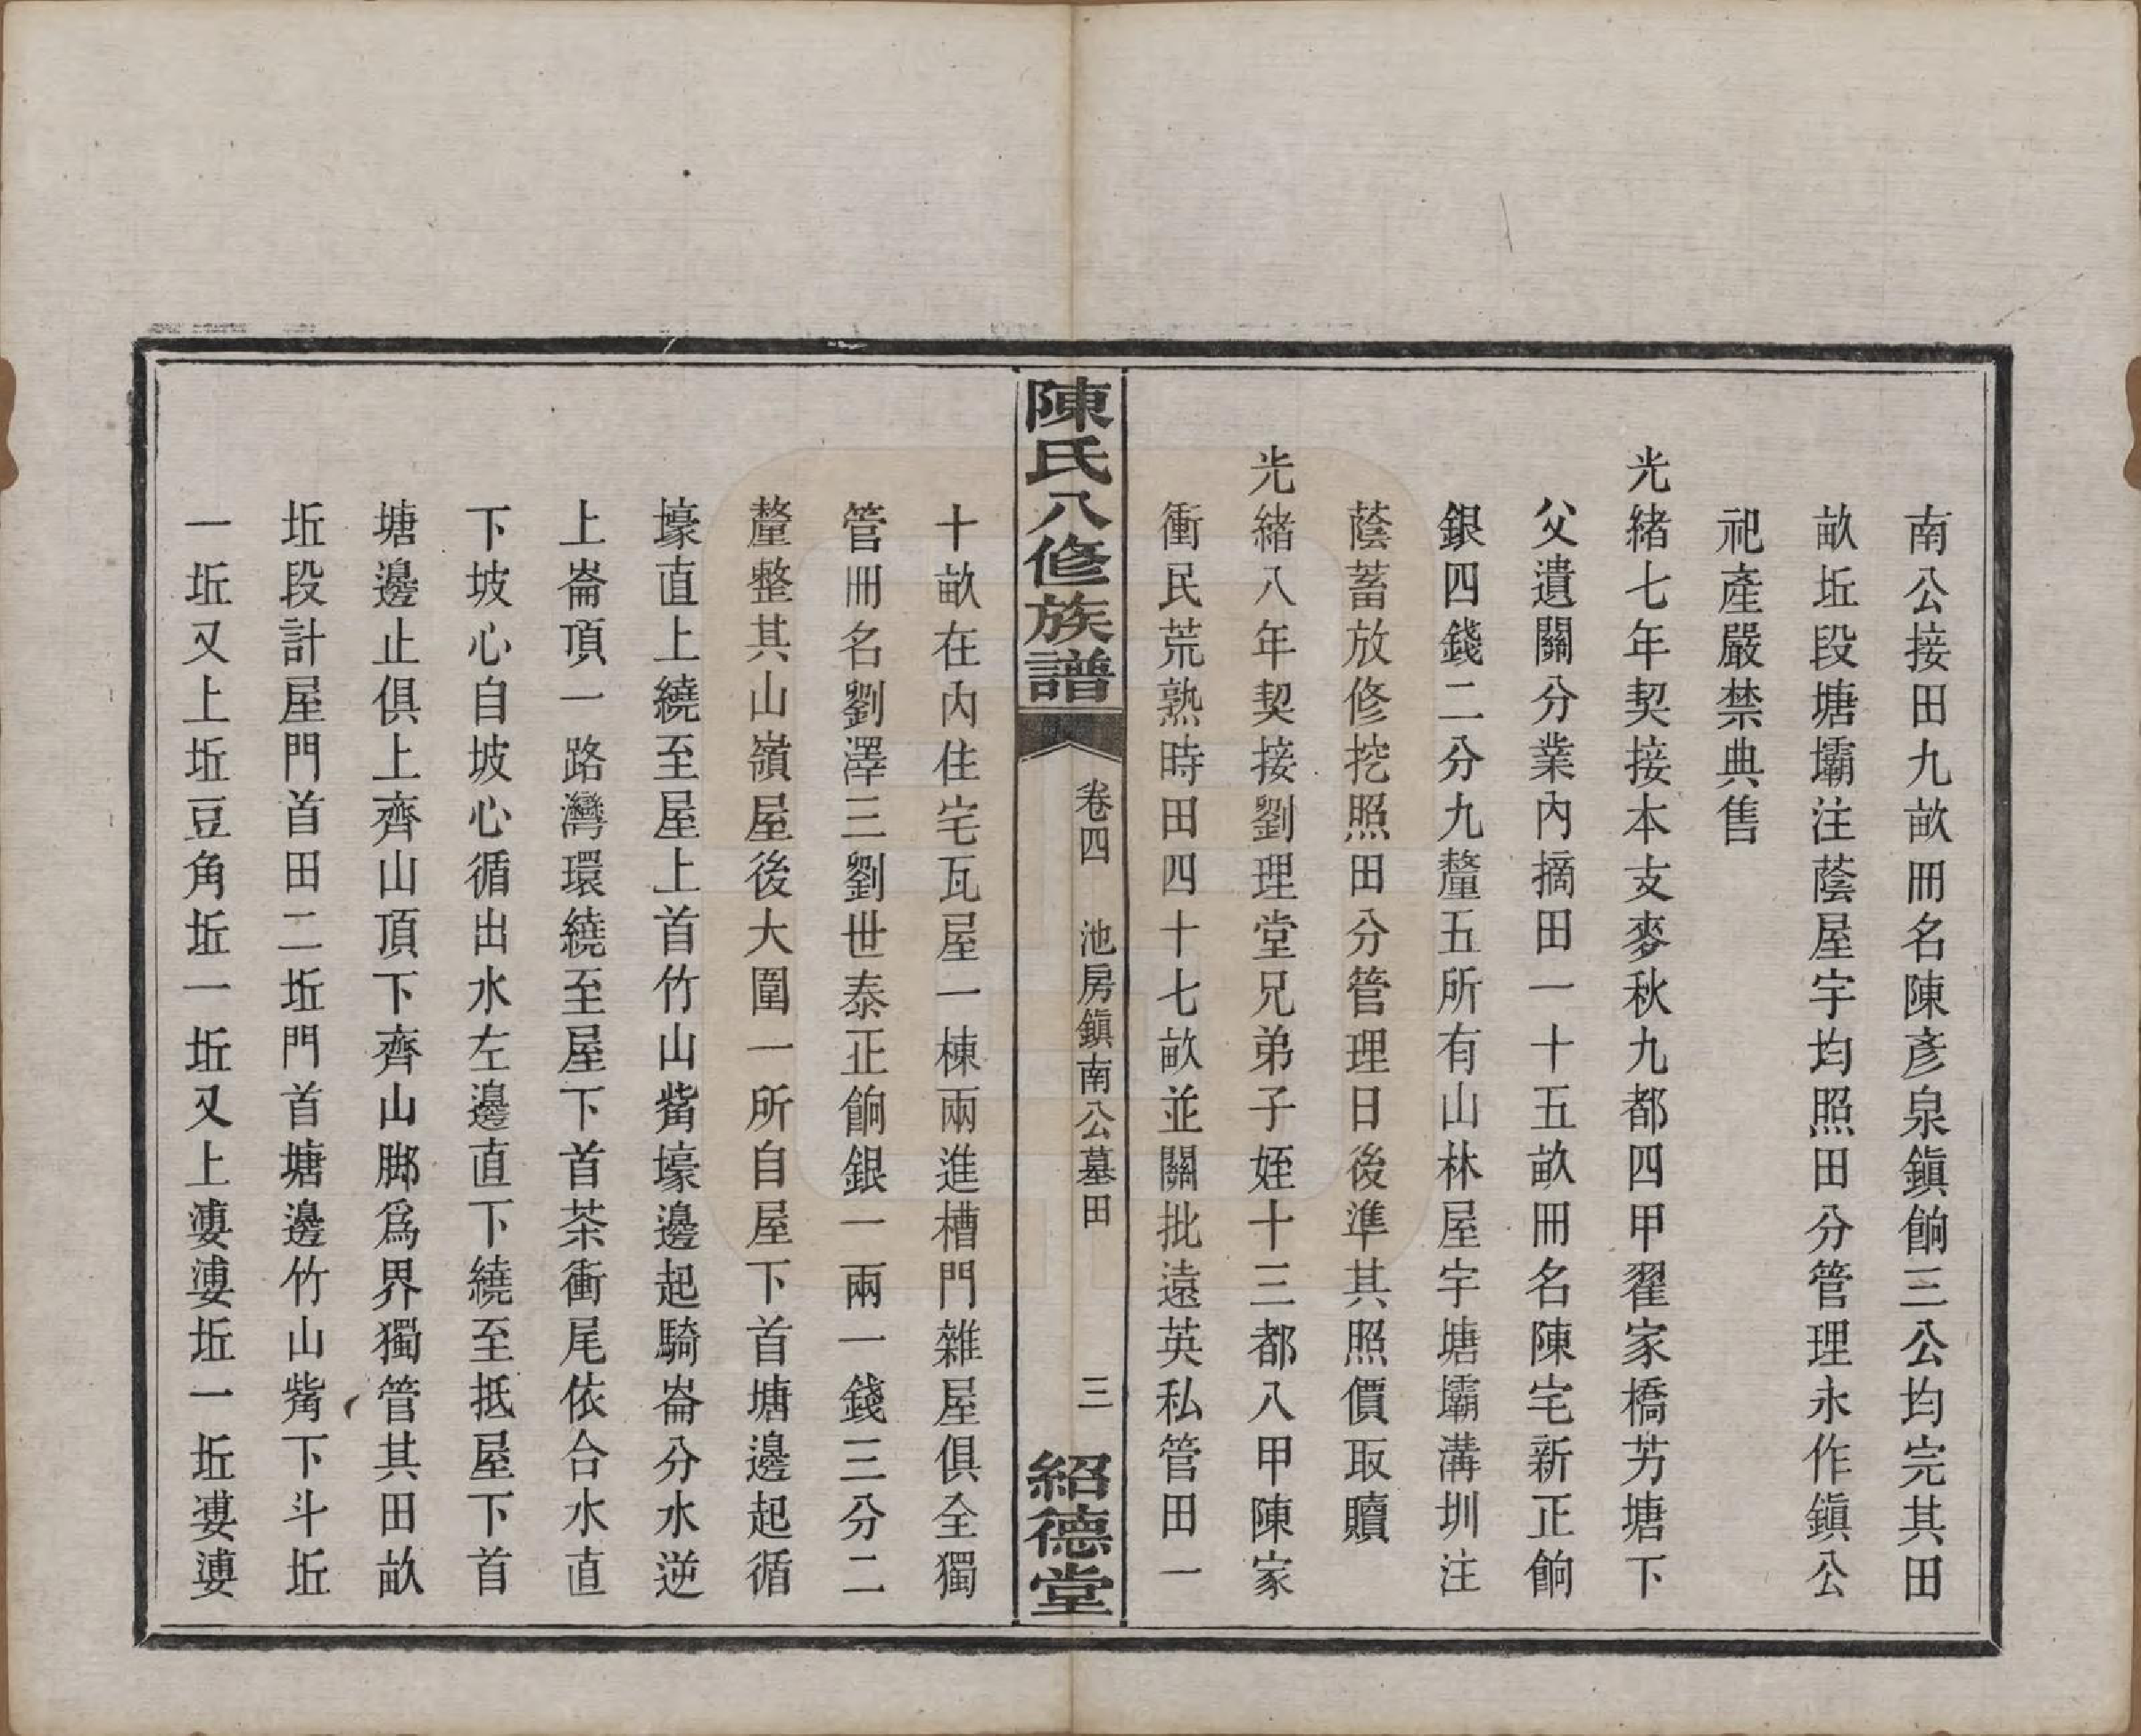 南公接田九畝冊名陳彥泉鎭餉三公均完其田
畝坵段塘壩注蔭屋宇均照田分管理永作鎭公
祀產嚴禁典售
光緒七年契接本支麥秋九都四甲翟家橋艻塘下
父遺關分業內摘田一十五畝冊名陳宅新正餉
銀四錢二分九釐五所有山林屋宇塘壩溝圳注
蔭蓄放修挖照田分管理日後準其照價取贖
光緒八年契接劉理堂兄弟子姪十三都八甲陳家
衝民荒熟時田四十七畝並關批遠英私管田一
陳氏八修族譜
卷四
池房鎭南公墓田
三
紹德堂
十畝在內住宅瓦屋一棟兩進槽門雜屋俱全獨
管冊名劉澤三劉世泰正餉銀一兩一錢三分二
釐整其山嶺屋後大圍一所自屋下首塘邊起循
壕直上繞至屋上首竹山觜壕邊起騎崙分水逆
上崙頂一路灣環繞至屋下首茶衝尾依合水直
下坡心自坡心循出水左邊直下繞至抵屋下首
塘邊止俱上齊山頂下齊山腳爲界獨管其田畝
坵段計屋門首田二坵門首塘邊竹山觜下斗坵
一坵又上坵豆角坵一坵又上漊漊坵一坵漊漊